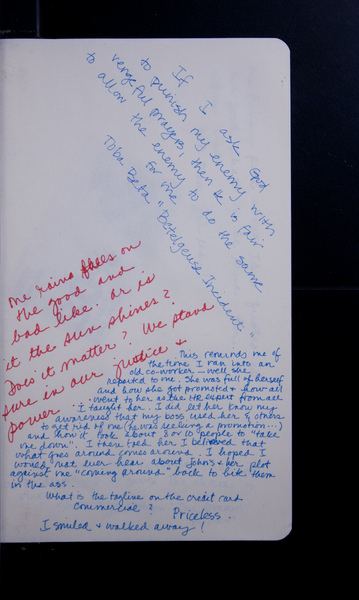 If I ask God
to punish my enemy with
vengeful prayers, then be is fair
to allow the enemy to do the same
for me
Toba Beta "Betelgeuse Incident"
The rains falls on
the good and
bad like. Or is
it the sun shines?
Does it matter? We stand
sure in our justice &
power.
This reminds me of
the time I ran into an
old co-worker - well she
reported to me. She was full of herself
and how she got promoted & how all
went to her as the HR expert from all
I taught her. I did let her know my
awareness that my boss used her & others
to get rid of me (he was seeking a promotion...)
and how it took about 8 or 10 people to "take
me down". I then told her I believed that
what goes around comes around. I hoped I
would not ever hear about John's & her plot
against me "coming around" back to bite them
in the ass.
What is the tagline on the credit card
commercial? Priceless.
I smiled & walked away!